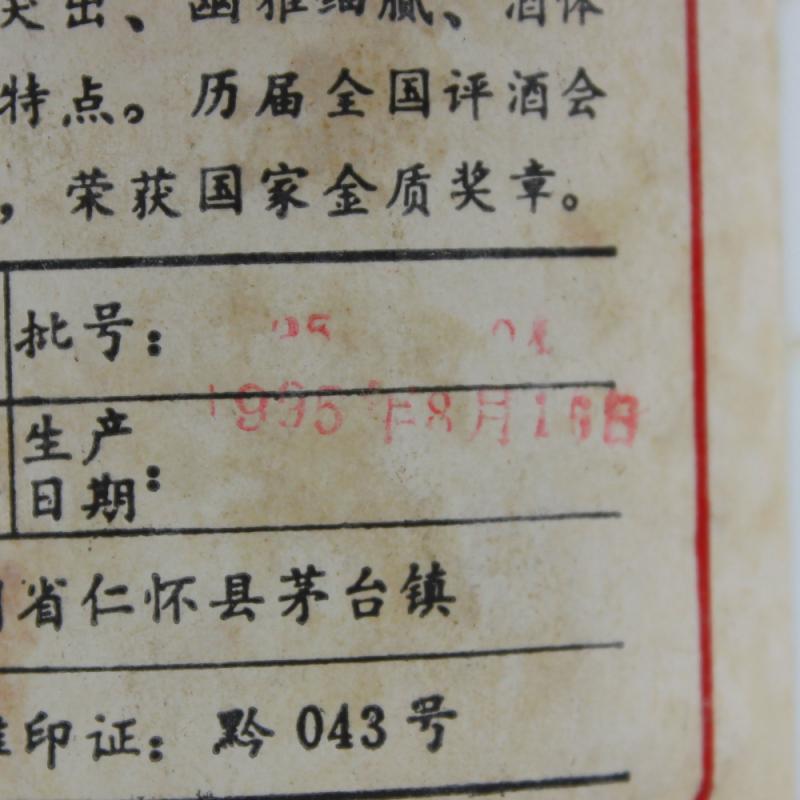 突出、幽雅细腻、酒体
特点。历届全国评酒会
，荣获国家金质奖章。
批号：
生产日期：1995年8月16日
省仁怀县茅台镇
准印证：黔043号